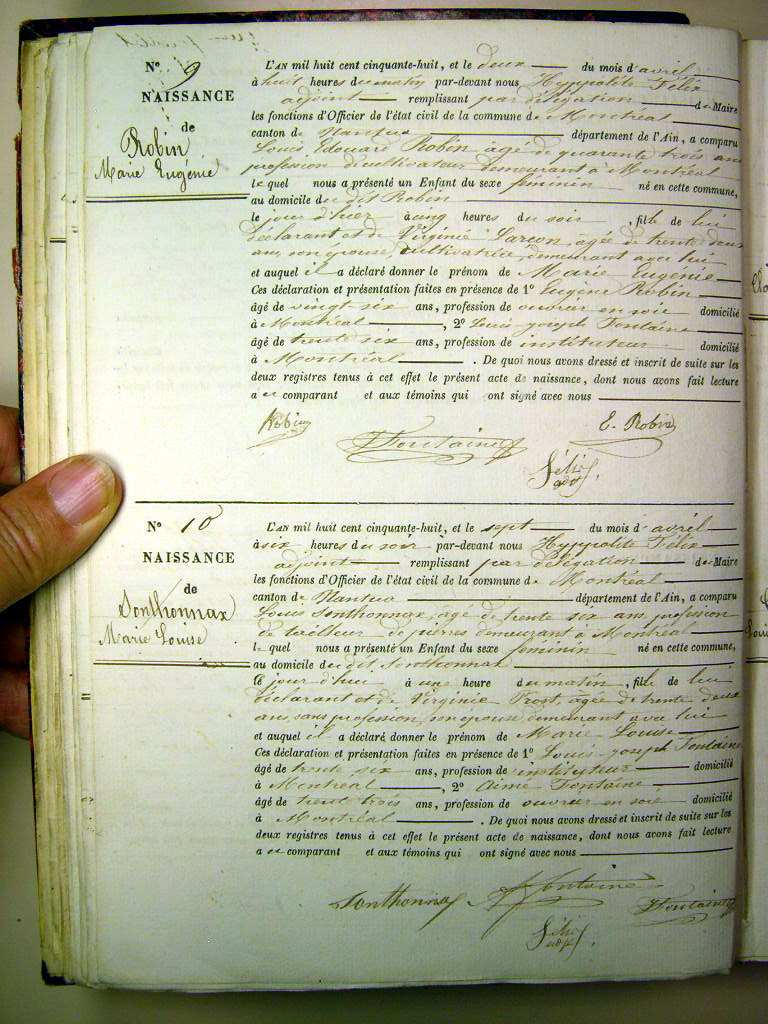 N° 9
NAISSANCE
de
Robin
Marie Eugénie
L'AN mil huit cent cinquante-huit, et le deux du mois d'avril
à huit heures du matin par-devant nous Hyppolite Félix
adjoint remplissant par délégation de Maire
les fonctions d'Officier de l'état civil de la commune de Montréal
canton de Nantua département de l'Ain, a comparu
Louis Edouard Robin, agé de quarante trois ans
profession de cultivateur demeurant à Montréal
lequel nous a présenté un Enfant du sexe feminin né en cette commune,
au domicile du dit Robin
le jour d'hier à cinq heures du soir, fille de lui
déclarant et de Virginie Larçon, agée de trente deux
ans, son épouse, cultivatrice, demeurant avec lui
et auquel il a déclaré donner le prénom de Marie Eugénie
Ces déclaration et présentation faites en présence de 1° Eugène Robin
âgé de vingt six ans, profession de ouvrier en soie domicilié
à Montréal, 2° Louis joseph Fontaine
âgé de trente six ans, profession de instituteur domicilié
à Montréal. De quoi nous avons dressé et inscrit de suite sur les
deux registres tenus à cet effet le présent acte de naissance, dont nous avons fait lecture
a u comparant et aux témoins qui ont signé avec nous
Robin
Fontaine
E. Robin
Félix
adj.
N° 10
NAISSANCE
de
Sonthonnax
Marie Louise
L'AN mil huit cent cinquante-huit, et le sept du mois d'avril
à six heures du soir par-devant nous Hyppolite Félix
adjoint remplissant par délégation de Maire
les fonctions d'Officier de l'état civil de la commune de Montréal
canton de Nantua département de l'Ain, a comparu
Louis Sonthonnax, agé de trente six ans, profession
de tailleur de pierres demeurant à Montréal
lequel nous a présenté un Enfant du sexe feminin né en cette commune,
au domicile du dit Sonthonnax
le jour d'hui à une heure du matin, fille de lui
déclarant et de Virginie Frost, agée de trente deux
ans, sans profession, son épouse, demeurant avec lui
et auquel il a déclaré donner le prénom de Marie Louise
Ces déclaration et présentation faites en présence de 1° Louis joseph Fontaine
âgé de trente six ans, profession de instituteur domicilié
à Montréal, 2° Aimé Fontaine
âgé de trent trois ans, profession de ouvrier en soie domicilié
à Montréal. De quoi nous avons dressé et inscrit de suite sur les
deux registres tenus à cet effet le présent acte de naissance, dont nous avons fait lecture
a u comparant et aux témoins qui ont signé avec nous
Sonthonnax
A Fontaine
Fontaine
Félix
adj.